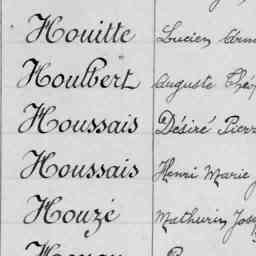 Houitte Lucien
Houlbert Auguste
Houssais Désiré Pierre
Houssais Henri Marie
Houzé Mathurin